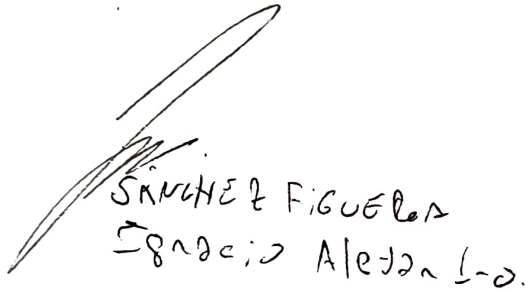 SÁNCHEZ FiGUEROA
Ignacio Alejandro.